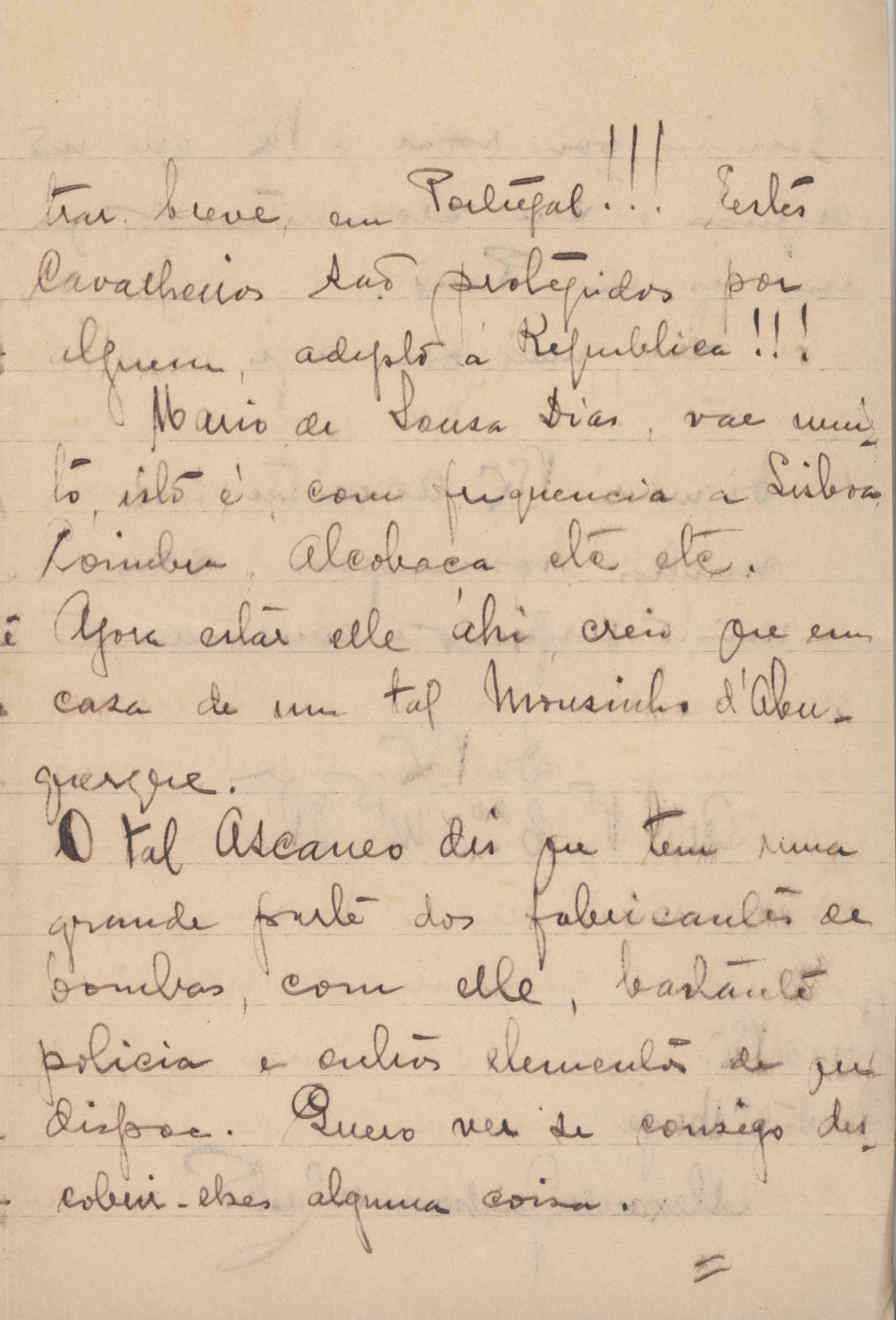 trar breve, em Portugal!!! Estes
Cavalheiros são protegidos por
alguem, adepto á Republica!!!
Mario de Sousa Dias, vae mui-
to, isto é, com frequencia a Lisboa,
Coimbra, Alcobaça etc etc.
Agora estár elle áhi, creio que em
casa de um tal Mousinho d'Abu-
querque.
O tal Ascaneo dis que tem uma
grande parte dos fabricantes de
bombas, com elle, bastante
policia e outros elementos de que
dispoe. Quero ver se consigo des-
cobrir-lhes alguma coisa.
=